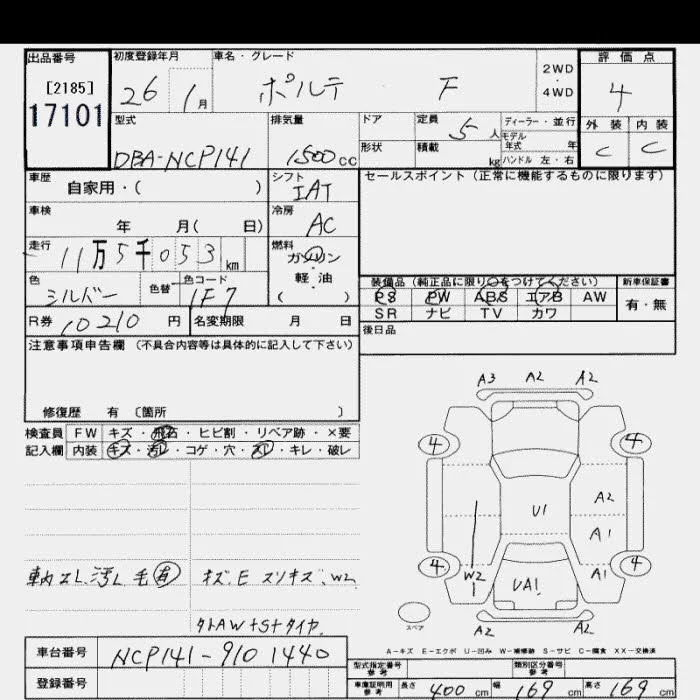 出品番号
[2185]
17101
初度登録年月
26 1月
車名・グレード
ポルテ F
2WD
・
4WD
評価点
4
外装 内装
C C
型式
DBA-NCP141
排気量
1500cc
ドア
定員
5人
ディーラー・並行
モデル
年式 年
形状
積載
kg
ハンドル 左・右
車歴
自家用・( )
シフト
IAT
セールスポイント(正常に機能するものに限ります)
車検
年 月( 日)
冷房
AC
走行
11万5千053km
燃料
ガソリン
軽・油
( )
色
シルバー
色替
色コード
1F7
装備品(純正品に限り○をつけてください)
新車保証書
PS PW ABS エアB AW
SR ナビ TV カワ
有・無
R券 10210円
名変期限 月 日
後日品
注意事項申告欄(不具合内容等は具体的に記入して下さい)
修復歴 有〔箇所 〕
検査員
記入欄
FW キズ・飛石・ヒビ割・リペア跡・×要
内装 キズ・汚レ・コゲ・穴・スレ・キレ・破レ
A3 A2 A2
4 4
A2
U1
A1
4 W2 A1 4
UA1
スペア
A2 A2
車内スレ.汚レ 毛有
キズ.E スリキズ.W2
外AW+St+タイヤ
A-キズ E-エクボ U-凹み W-補修跡 S-サビ C-腐食 XX-交換済
車台番号
NCP141-9101440
登録番号
型式指定番号
参考
類別区分番号
参考
車庫証明用
参考
長さ 400cm
幅 169cm
高さ 169cm